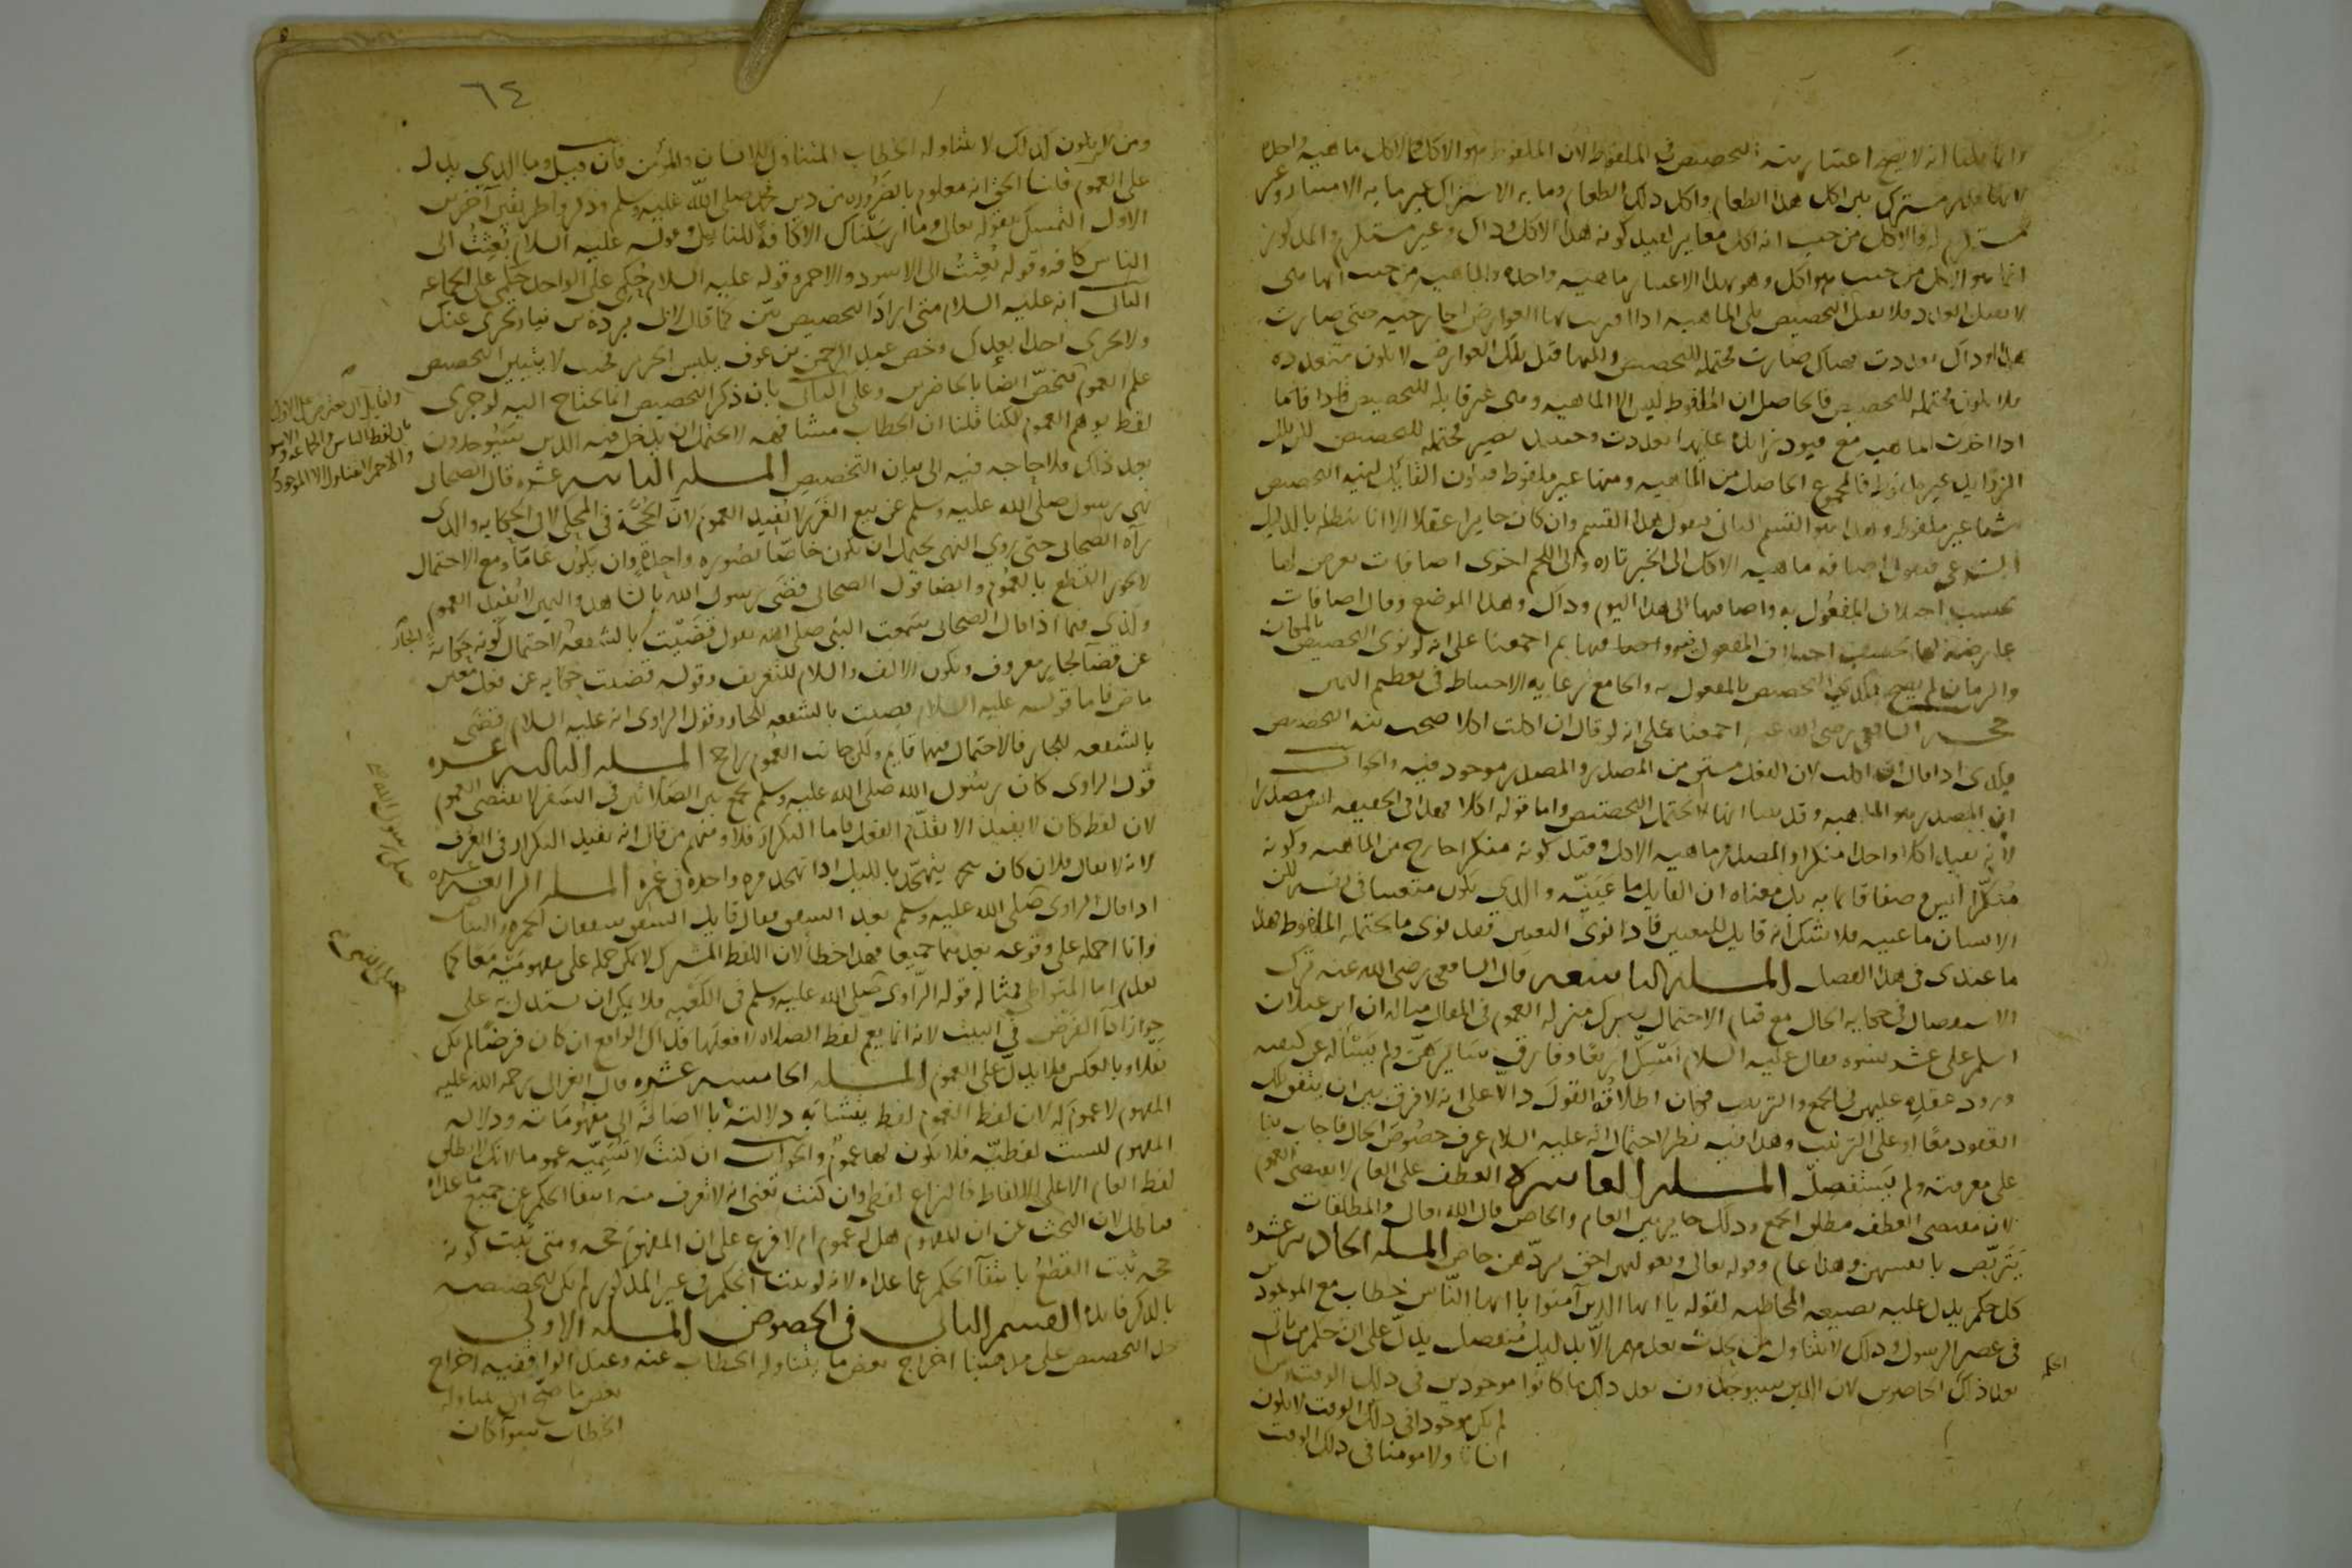 وانما قلنا انه لا يصح اعتبار نية التخصيص في الملفوظ لان الملفوظ هو الاكل والاكل ماهية واحدة
لانها قدر مشترك بين اكل هذا الطعام واكل ذلك الطعام وما به الاشتراك غير ما به الامتياز وغير
مستلزم له فالاكل من حيث انه اكل مغاير لقيد كونه هذا الاكل وذاك وغير مستلزم والمذكور
انما هو الاكل من حيث هو اكل وهو بهذا الاعتبار ماهية واحدة والماهية من حيث انها هي
لا تقبل العدد فلا تقبل التخصيص بلى الماهية اذا اقترنت بها العوارض الخارجية حتى صارت
هذا او ذاك تعددت فهناك صارت محتملة للتخصيص ولكنها قبل تلك العوارض لا تكون متعددة
فلا تكون محتملة للتخصيص فالحاصل ان الملفوظ ليس الا الماهية وهي غير قابلة للتخصيص فاما
اذا اخذت الماهية مع قيود زائدة عليها تعددت وحينئذ تصير محتملة للتخصيص لكن تلك
الزوايد غير ملفوظ فالمجموع الحاصل من الماهية ومنها غير ملفوظ فيكون القابل لنية التخصيص
شيا غير ملفوظ وهذا هو القسم الثاني فنقول هذا القسم وان كان جايزا عقلا الا انا نبطله بالدليل
الشرعي فنقول اضافة ماهية الاكل الى الخبز تارة والى اللحم اخرى اضافات تعرض لها
بحسب اختلاف المفعول به واضافتها الى هذا اليوم وذاك وهذا الموضع وذاك اضافات
عارضة لها بحسب اختلاف المفعول فيه ثم اجمعنا على انه لو نوى التخصيص بالمكان
والزمان لم يصح فكذي التخصيص بالمفعول به والجامع رعاية الاحتياط في تعظيم اليمين
حجة الشافعي رضى الله عنه اجمعنا على انه لو قال ان اكلت اكلا صحت نية التخصيص
فكذى اذا قال ان اكلت لان الفعل مشتق من المصدر والمصدر موجود فيه والجواب
ان المصدر هو الماهية وقد بينا انها لا تحتمل التخصيص واما قوله اكلا فهذا في الحقيقة ليس مصدرا
لانه يفيد اكلا واحدا منكرا والمصدر ماهية الاكل وقيد كونه منكرا خارج عن الماهية وكونه
منكرا ليس وصفا قايما به بل معناه ان القايل ما عينه والذي يكون متعينا في نفسه لكن
الانسان ما عينه فلا شك انه قابل للتعيين فاذا نوى التعيين فقد نوى ما يحتمله الملفوظ هذا
ما عندى في هذا الفصل المسله التاسعه قال الشافعي رضى الله عنه ترك
الاستفصال في حكاية الحال مع قيام الاحتمال ينزل منزلة العموم في المقال مثاله ان ابن غيلان
اسلم على عشر نسوة فقال عليه السلام امسك اربعا وفارق سايرهن ولم يسأله عن كيفية
ورود عقده عليهن في الجمع والترتيب فكان اطلاقه القول دالا على انه لا فرق بين ان تتفق تلك
العقود معا او على الترتيب وهذا فيه نظر لاحتمال انه عليه السلام عرف خصوص الحال فاجاب بنا
على معرفته ولم يستفصل المسله العاشره العطف على العام لا يقتضى العموم
لان مقتضى العطف مطلق الجمع وذلك جايز بين العام والخاص قال الله تعالى والمطلقات
يتربصن بانفسهن وهذا عام وقوله تعالى وبعولتهن احق بردهن خاص المسله الحاديه عشره
كل حكم يدل عليه بصيغة المخاطبة لقوله يا ايها الذين آمنوا يا ايها الناس خطاب مع الموجودين
في عصر الرسول وذلك لا يتناول من يحدث بعدهم الا بدليل منفصل يدل على ان حكم من ياتي
بعد ذلك الحاضرين لان الذين سيوجدون بعد ذلك ما كانوا موجودين في ذلك الوقت ومن
لم يكن موجودا في ذلك الوقت لا يكون
انسانا ولا مومنا في ذلك الوقت
الحكم
٦٤
ومن لا يكون كذلك لا يتناوله الخطاب المتناول للانسان والمؤمن فان قيل وما الذي يدل
على العموم قلنا الحق انه معلوم بالضرورة من دين محمد صلى الله عليه وسلم وذكروا طريقين آخرين
الاول التمسك بقوله تعالى وما ارسلناك الا كافة للناس وقوله عليه السلام بعثت الى
الناس كافة وقوله بعثت الى الاسود والاحمر وقوله عليه السلام حكمي على الواحد حكمي على الجماعة
الثاني انه عليه السلام متى اراد التخصيص بين كما قال لابى بردة بن نيار تجزي عنك
ولا تجزي احدا بعدك وخص عبد الرحمن بن عوف بلبس الحرير فحيث لا يتبين التخصيص
علم العموم لكنا قلنا ان الخطاب مشافهة لا يحتمل ان يدخل فيه الذين سيوجدون
بعد ذلك فلا حاجة فيه الى بيان التخصيص المسله الثانيه عشره قال الصحابى
نهى رسول الله صلى الله عليه وسلم عن بيع الغرر لا يفيد العموم لان الحجة في المحكي لا في الحكاية والذى
رآه الصحابى حتى روى النهى يحتمل ان يكون خاصا بصورة واحدة وان يكون عاما ومع الاحتمال
لا يجوز القطع بالعموم وايضا قول الصحابى قضى رسول الله بالشاهد واليمين لا يفيد العموم
وكذى فيما اذا قال الصحابى سمعت النبى صلى الله يقول قضيت بالشفعة للجار لاحتمال كونه حكاية
عن قضآ لجار معروف ويكون الالف واللام للتعريف وقوله قضيت حكاية عن فعل معين
ماض فاما قوله عليه السلام قضيت بالشفعه للجار وقول الراوى انه عليه السلام قضى
بالشفعه للجار فالاحتمال فيهما قايم ولكن جانب العموم راجح المسله الثالثه عشره
قول الراوى كان رسول الله صلى الله عليه وسلم يجمع بين الصلاتين في السفر لا يقتضى العموم
لان لفظ كان لا يفيد الا تقدم الفعل فاما التكرار فلا ومنهم من قال انه يفيد التكرار في العرف
لانه لا يقال فلان كان يتهجد بالليل اذا تهجد مرة واحدة في عمره المسله الرابعه عشره
اذا قال الراوى صلى الله عليه وسلم بعد الشفق فقال قايل الشفق شفقان الحمرة والبياض
وانا احمله على وقوعه بعدهما جميعا فهذا خطأ لان اللفظ المشترك لا يمكن حمله على مفهوميه معا كما
تقدم اما المتواطي فمثاله قوله الراوى صلى الله عليه وسلم في الكعبة فلا يمكن ان يستدل به على
جواز ادآ الفرض في البيت لانه انما يعم لفظ الصلاة لا فعلها فذاك الواقع ان كان فرضا لم يكن
نفلا وبالعكس فلا يدل على العموم المسله الخامسه عشره قال الغزالى رحمه الله عليه
المفهوم لا عموم له لان لفظ العموم لفظ يتشابه دلالته بالاضافة الى مفهوماته ودلالة
المفهوم ليست لفظية فلا يكون لها عموم والجواب ان كنت لا تسميه عموما لانك لا تطلق
لفظ العام الا على الالفاظ فالنزاع لفظي وان كنت تعنى انه لا تعرف منه انتفا الحكم عن جميع ما عداه
فباطل لان البحث عن ان المفهوم هل له عموم ام لا فرع على ان المفهوم حجة ومتى ثبت كونه
حجه ثبت القطع بانتفآ الحكم عما عداه لانه لو ثبت الحكم في غير المذكور لم يكن لتخصيصه
بالذكر فايدة القسم الثانى في الخصوص المسله الاولى
حد التخصيص على مذهبنا اخراج بعض ما يتناوله الخطاب عنه وعند الواقفيه اخراج
بعض ما صح ان يتناوله
الخطاب سوآ كان
ولقايل ان يعترض على الاول
بان لفظ الناس والجماعة والاسود
والاحمر لا يتناول الا الموجودين
للجار
صلى رسول الله